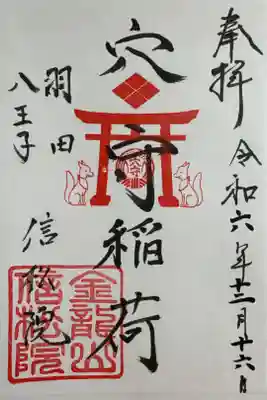 奉拝 令和六年十二月廿六日
穴守稲荷
羽田
八王子 信松院
金龍山
信松院